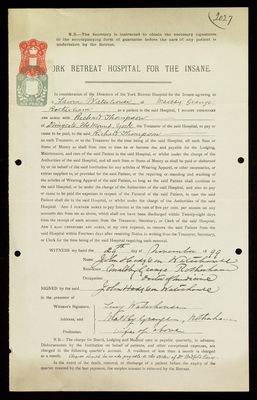 2027
N.B.—The Secretary is instructed to obtain the necessary signatures
to the accompanying form of guarantee before the case of any patient is
undertaken by the Retreat.
YORK RETREAT HOSPITAL FOR THE INSANE.
In consideration of the Directors of the York Retreat Hospital for the Insane agreeing to
Laura Waterhouse
Rotherham as a patient in the said Hospital, I
and agree with Richard Thompson
York, the Treasurer of the said Hospital, to pay or
cause to be paid, to the said Richard Thompson
as such Treasurer, or the Treasurer for the time being of the said Hospital, all such Sum or
Sums of Money as shall from time to time be or become due and payable for the Lodging,
Maintenance, and care of the said Patient in the said Hospital, or whilst under the charge of the
Authorities of the said Hospital, and all such Sum or Sums of Money as shall be paid or disbursed
by or on behalf of the said Institution for any articles of Wearing Apparel, or other necessary
of the articles of Wearing Apparel of the said Patient, so long as the said Patient shall continue in
the said Hospital, or be under the charge of the Authorities of the said Hospital, and also to pay
or cause to be paid the expenses in respect of the Funeral of the said Patient, in case the said
Patient shall die in the said Hospital, or whilst under the charge of the Authorities of the said
Hospital. And I further agree to pay Interest at the rate of five per cent. per annum on any
accounts due from me as above, which shall not have been discharged within Twenty-eight days
from the receipt of such account from the Treasurer, Secretary, or Clerk of the said Hospital.
And I also undertake and agree, at my own expense, to remove the said Patient from the
said Hospital within Fourteen days after receiving Notice in writing from the Treasurer, Secretary,
or Clerk for the time being of the said Hospital requiring such removal.
WITNESS my hand the 29th day of November 1899
Name John Hodgson Waterhouse
Residence Grange Rotherham
Occupation
SIGNED by the said John Hodgson Waterhouse
in the presence of
Witness's Signature, Lucy Waterhouse
Address, and Grange, Rotherham
Profession. Wife of above
N.B.—The charge for Board, Lodging and Medical care is payable quarterly, in advance.
Disbursements by the Institution on behalf of patients, and other exceptional expenses, are
charged in the following quarter's account. A residence of less than a month is charged
as a month.
In the event of the death, removal, or discharge of a patient before the expiry of the
quarter covered by the last payment, the surplus amount is returned by the Institution.